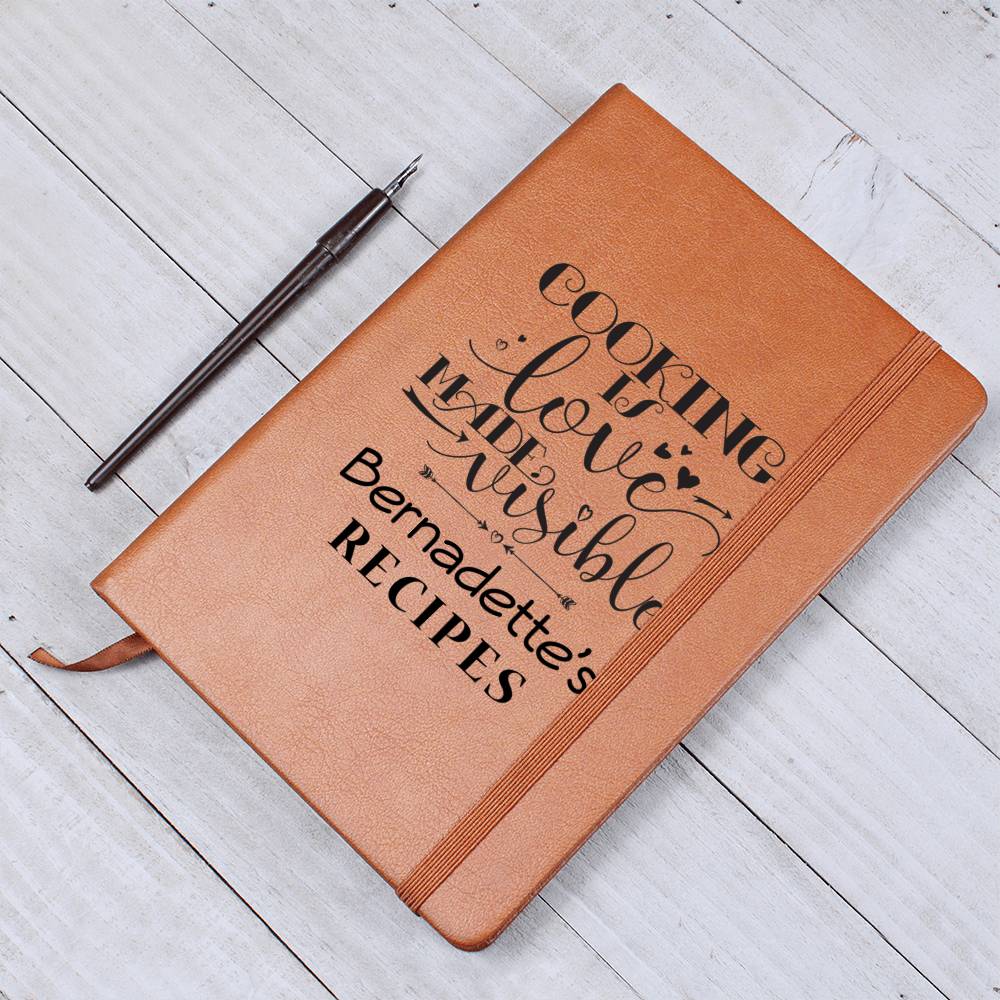 COOKING
IS
love
MADE
visible
Bernadette's
RECIPES